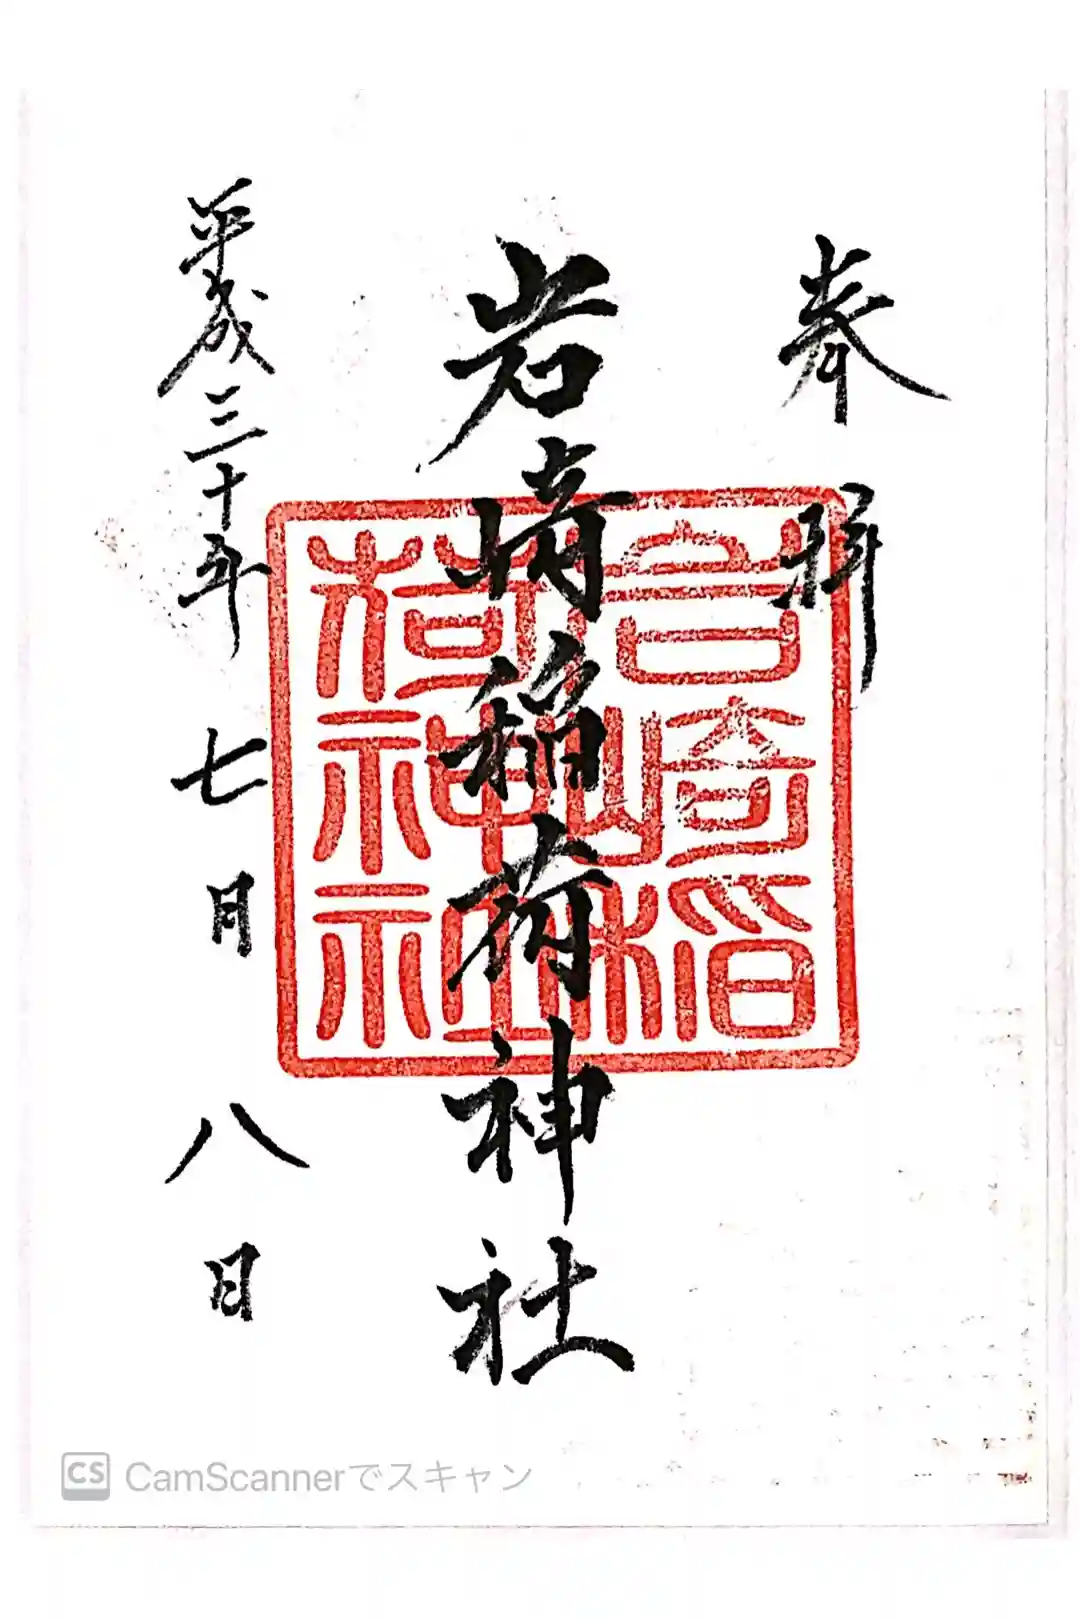 奉拝
岩崎稲荷神社
岩崎稲荷神社
平成三十年七月八日
CS CamScannerでスキャン